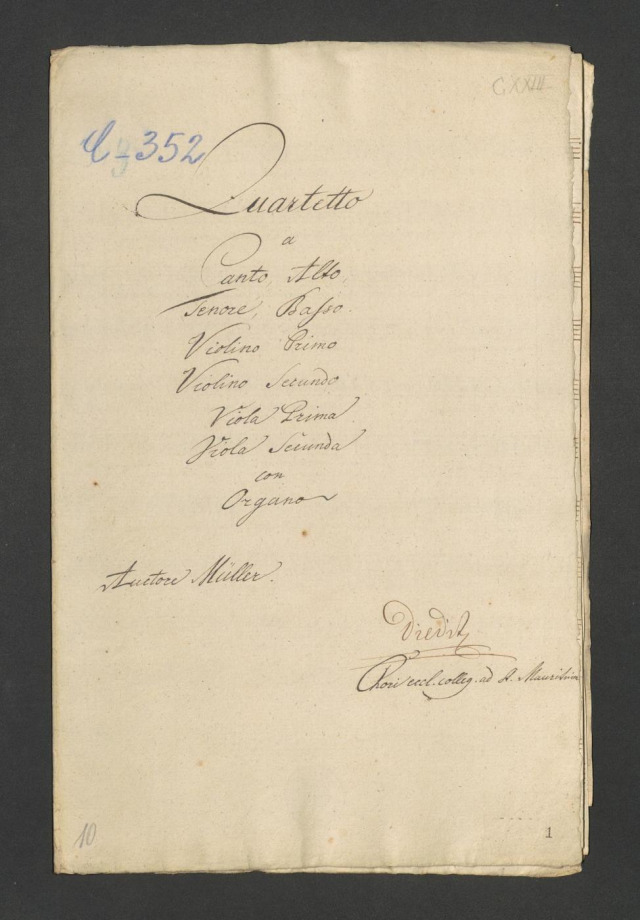 CXXIII
C-352
Quartetto
a
Canto, Alto,
Tenore, Basso.
Violino Primo
Violino Secundo
Viola Prima
Viola Secunda
con
Organo
Auctore Müller.
Chori eccl. colleg. ad S. Mauritium
10
1